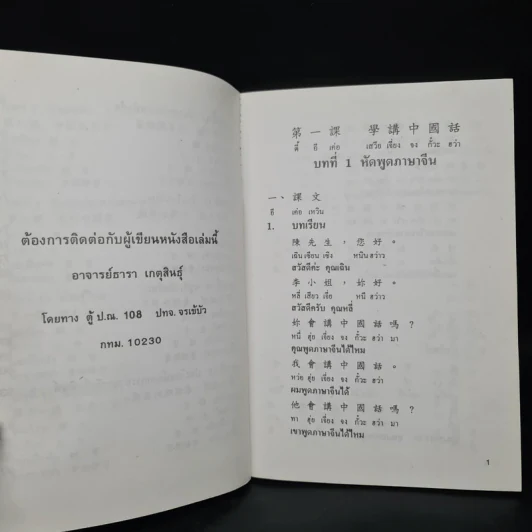 ต้องการติดต่อกับผู้เขียนหนังสือเล่มนี้
อาจารย์ธารา เกตุสินธุ์
โดยทาง ตู้ ป.ณ. 108 ปทจ. จรเข้บัว
กทม. 10230
第一課 學講中國話
ตี้ อี เค่อ เสวีย เจี่ยง จง กั๋วะ ฮว่า
บทที่ 1 หัดพูดภาษาจีน
一、課文
อี เค่อ เหวิน
1. บทเรียน
陳先生，您好。
เฉิน เซียน เซิง หนิน ฮ่าว
สวัสดีค่ะ คุณเฉิน
李小姐，妳好。
หลี่ เสียว เจี่ย หนี ฮ่าว
สวัสดีครับ คุณหลี่
妳會講中國話嗎？
หนี่ ฮุ่ย เจี่ยง จง กั๋วะ ฮว่า มา
คุณพูดภาษาจีนได้ไหม
我會講中國話。
หว่อ ฮุ่ย เจี่ยง จง กั๋วะ ฮว่า
ผมพูดภาษาจีนได้
他會講中國話嗎？
ทา ฮุ่ย เจี่ยง จง กั๋วะ ฮว่า มา
เขาพูดภาษาจีนได้ไหม
1